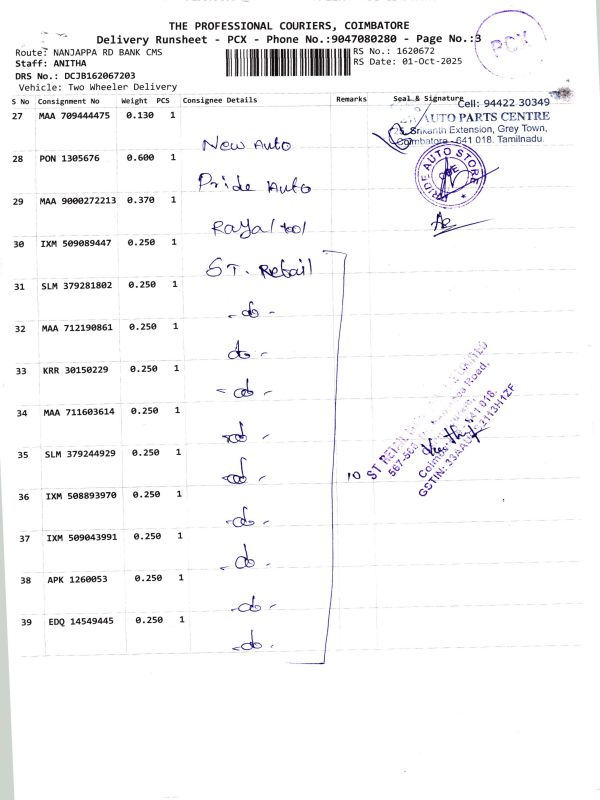 THE PROFESSIONAL COURIERS, COIMBATORE
Delivery Runsheet - PCX - Phone No.:9047080280 - Page No.:3
PCX
Route: NANJAPPA RD BANK CMS
RS No.: 1620672
Staff: ANITHA
RS Date: 01-Oct-2025
DRS No.: DCJB162067203
Vehicle: Two Wheeler Delivery
S No Consignment No Weight PCS Consignee Details Remarks Seal & Signature
Cell: 94422 30349
27 MAA 709444475 0.130 1
AUTO PARTS CENTRE
Srikanth Extension, Grey Town,
Coimbatore - 641 018. Tamilnadu.
New Auto
28 PON 1305676 0.600 1
PRIDE AUTO STORE
CBE
Pride Auto
29 MAA 9000272213 0.370 1
Royal tol
30 IXM 509089447 0.250 1
ST. Retail
31 SLM 379281802 0.250 1
-do-
32 MAA 712190861 0.250 1
do -
33 KRR 30150229 0.250 1
- do -
34 MAA 711603614 0.250 1
-do -
35 SLM 379244929 0.250 1
-do -
10
ST RETAIL
567-56
Road,
641 018.
GSTIN: 33AA 2113H1ZF
36 IXM 508893970 0.250 1
-do -
37 IXM 509043991 0.250 1
-do -
38 APK 1260053 0.250 1
-do -
39 EDQ 14549445 0.250 1
-do-